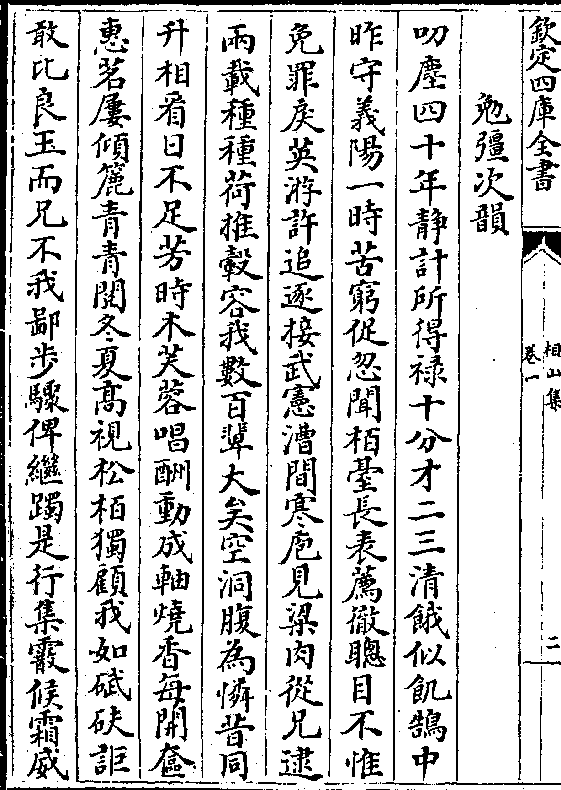 欽定四庫全書
相山集
卷一
二
勉彊次韻
叨塵四十年静計所得禄十分才二三清餓似飢鵠中
昨守義陽一時苦窮促忽聞栢臺長表薦徹聰目不惟
免罪戾英游許追逐接武憲漕間寒庖見粱肉從兄逮
兩載種種荷推轂容我數百輩大矣空洞腹為憐昔同
升相看日不足芳時木芙蓉唱酬動成軸燒香每開奩
惠茗屢傾簏青青閲冬夏髙視松栢獨顧我如碔砆詎
敢比良玉而兄不我鄙步驟俾繼躅是行集霰候霜威